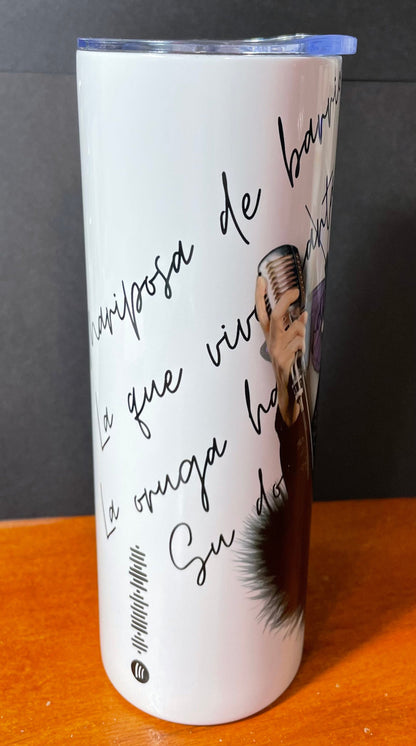 mariposa de barrio
La que vive
La oruga ha
Su do